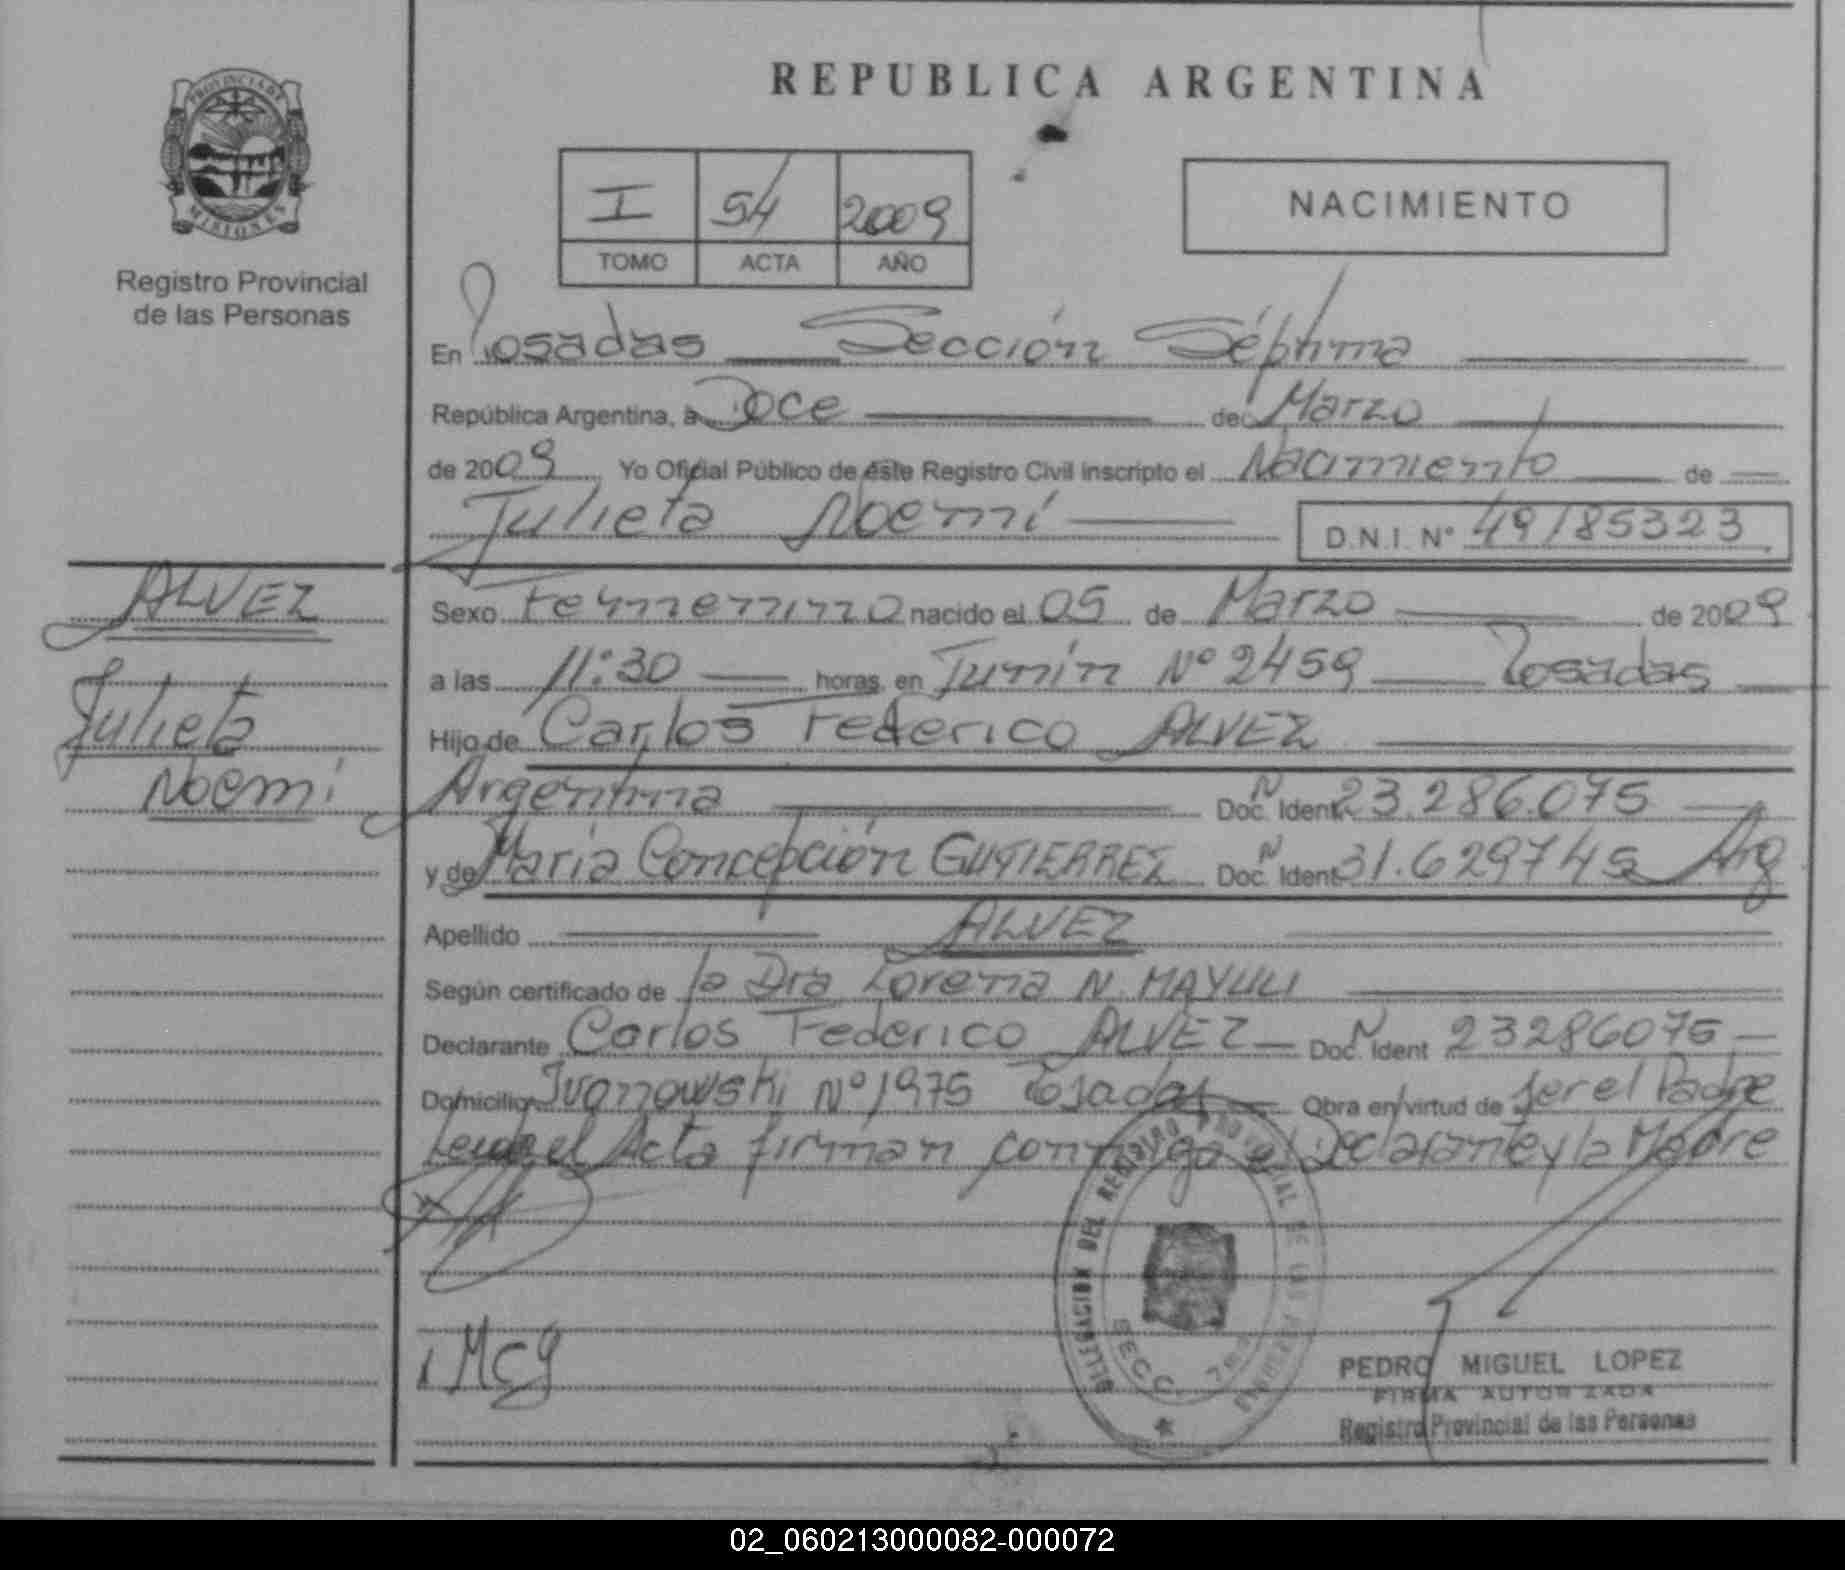 PROVINCIA DE
MISIONES
Registro Provincial
de las Personas
REPUBLICA ARGENTINA
I 54 2009
TOMO ACTA AÑO
NACIMIENTO
En Posadas Sección Séptima
República Argentina, a Doce de Marzo
de 2009 Yo Oficial Público de este Registro Civil inscripto el Nacimiento de
Julieta Noemí D.N.I. Nº 49185323
ALVEZ
Julieta
Noemí
Sexo Femenino nacido el 05 de Marzo de 2009
a las 11:30 horas, en Junín Nº 2459 Posadas
Hijo de Carlos Federico ALVEZ
Argentina Doc. Ident. N 23.286.075
y de María Concepción GUTIERREZ Doc. Ident. N 31.629745 Arg
Apellido ALVEZ
Según certificado de la Dra Lorena N. MAYULI
Declarante Carlos Federico ALVEZ Doc. Ident N 23286075
Domicilio Ivanowski Nº 1975 Posadas Obra en virtud de ser el Padre
Leída el Acta firman conmigo el Declarante y la Madre
DELEGACION DEL REGISTRO PROVINCIAL DE LAS PERSONAS
SECC. 7
MCG
PEDRO MIGUEL LOPEZ
FIRMA AUTORIZADA
Registro Provincial de las Personas
02_060213000082-000072